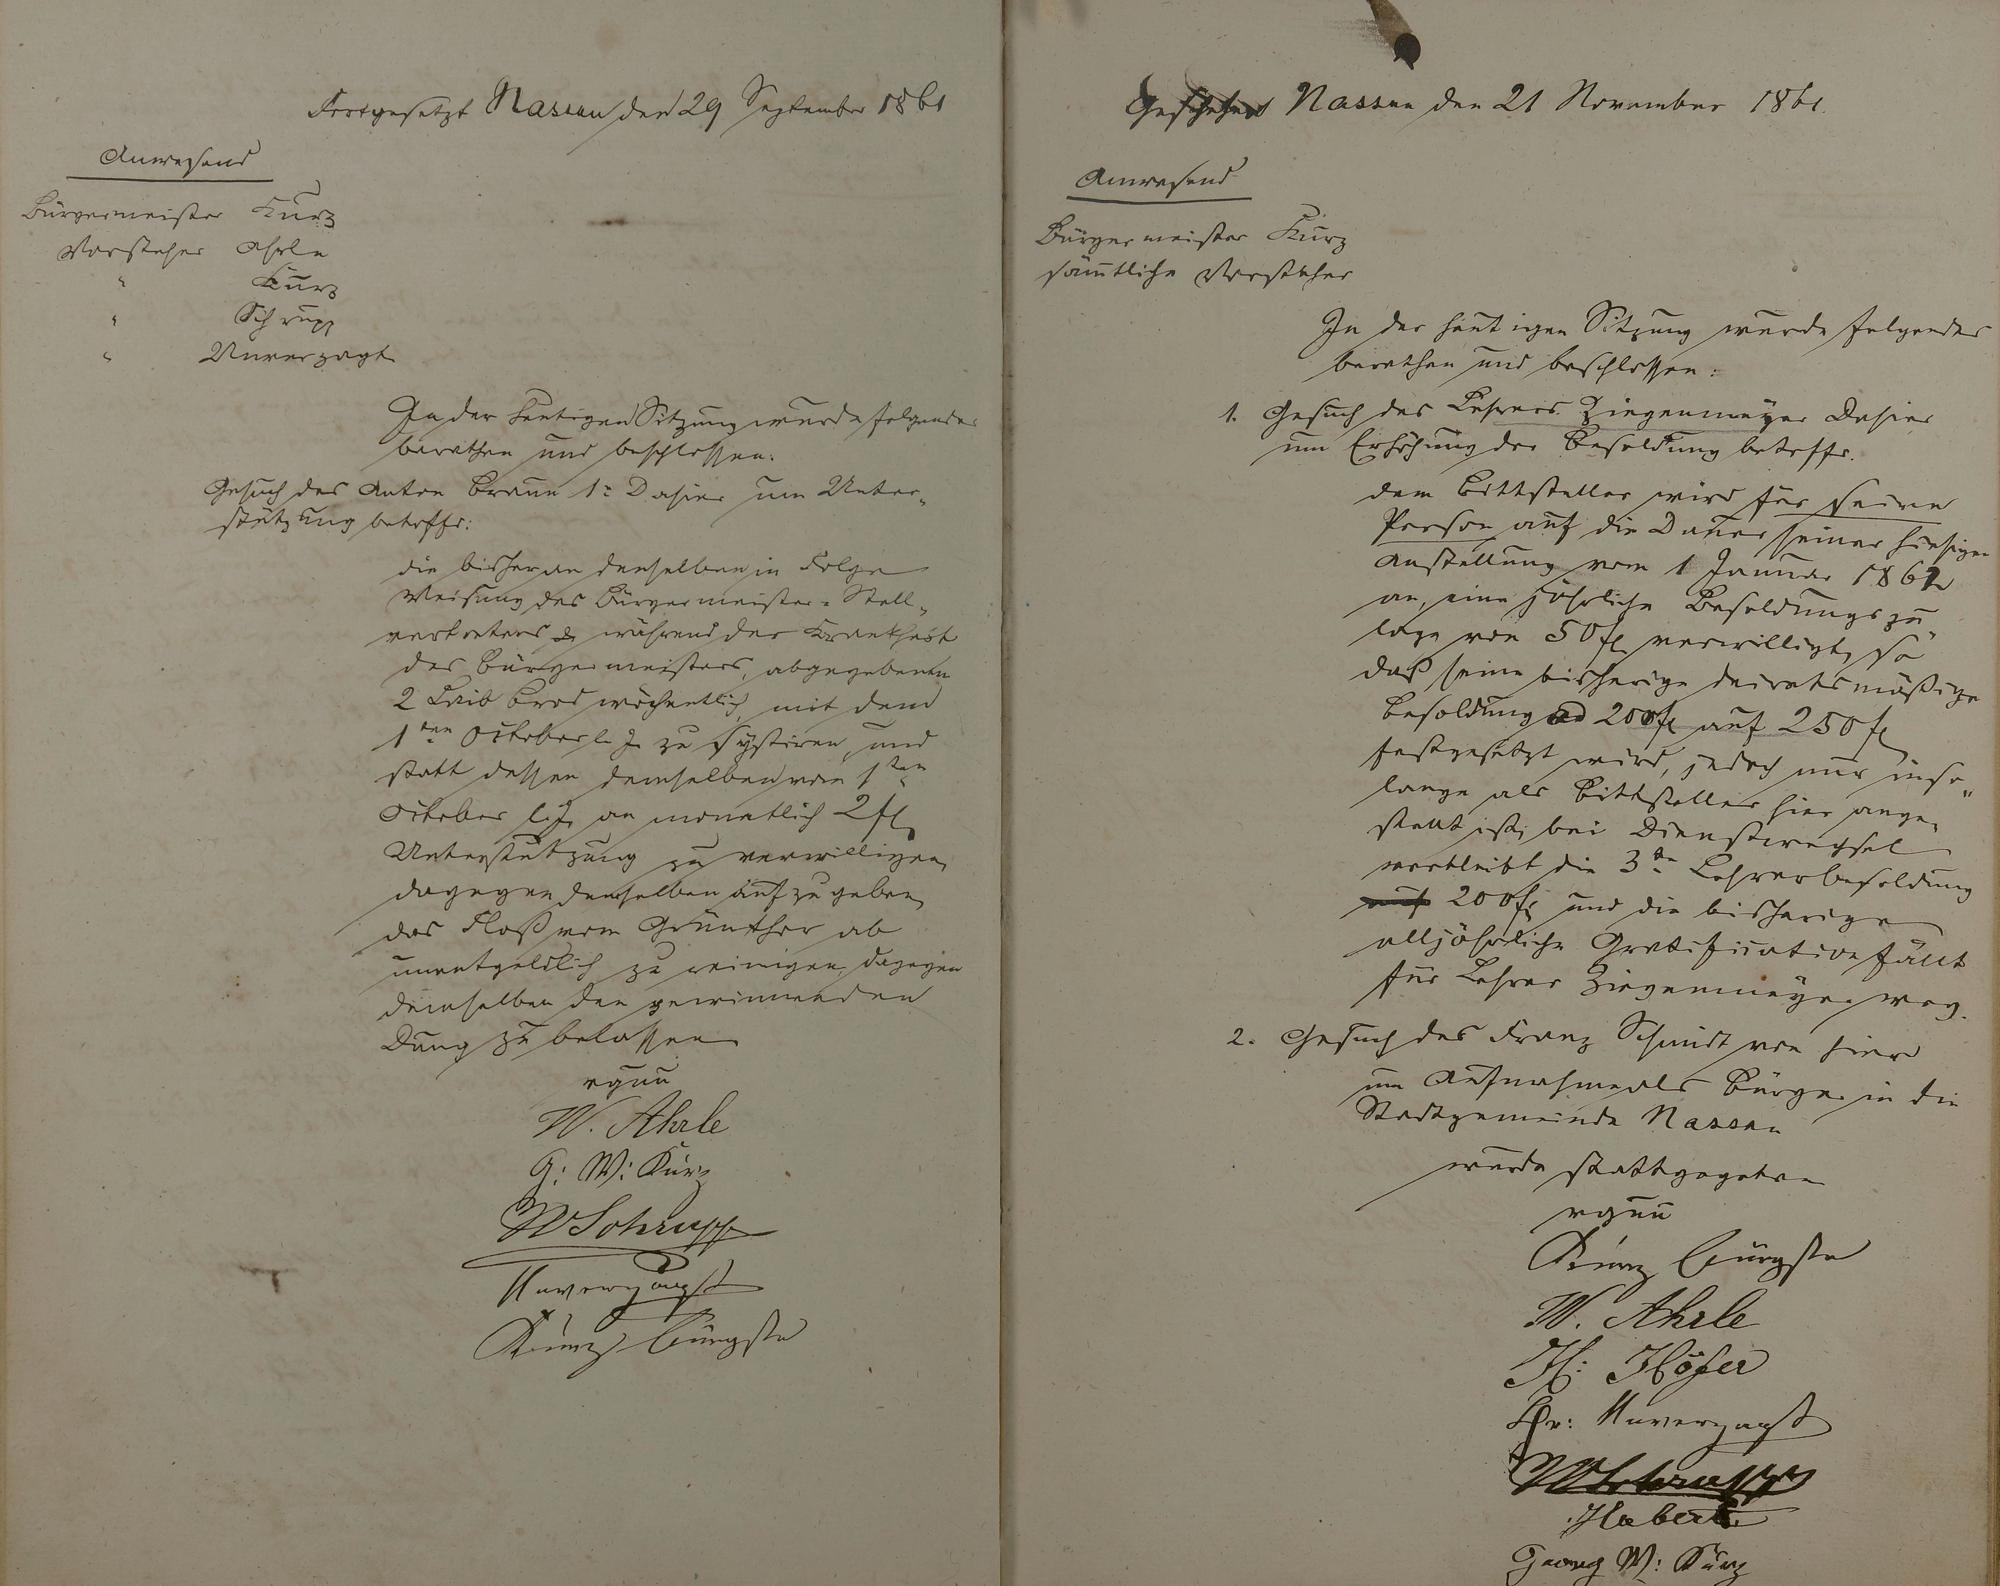 Fortgesetzt Nassau den 29 September 1861
Anwesend
Bürgermeister Kurz
Vorsteher Ahrle
" Kurz
" Schrupp
" Unverzagt
In der heutigen Sitzung wurde folgendes
berathen und beschlossen:
Gesuch des Anton Braun 1r Dahier um Unter-
stützung betreffd:
die bisher an denselben in Folge
Weisung des Bürgermeister-Stell-
vertreters während der Krankheit
des Bürgermeisters, abgegebenen
2 Laib Brod wöchentlich, mit dem
1ten October l. J. zu sistiren, und
statt dessen demselben vom 1ten
October l. J. an monatlich 2 fl
Unterstützung zu verwilligen,
dagegen demselben aufzugeben,
das Floß vom Günther ab
unentgeldlich zu reinigen, dagegen
demselben den gewinnenden
Dung zu belassen
vguu
W. Ahrle
G: W: Kurz
W Schrupp
Unverzagt
Kurz Bürgstr
Geschehen Nassau den 21 November 1861.
Anwesend
Bürgermeister Kurz
sämtliche Vorsteher
In der heutigen Sitzung wurde folgendes
berathen und beschlossen:
1. Gesuch des Lehrers Ziegenmeyer Dahier
um Erhöhung der Besoldung betreffd.
dem Bittsteller wird für seine
Person auf die Dauer seiner hiesigen
Anstellung vom 1 Januar 1862
an, eine jährliche Besoldungszu
lage von 50 fl verwilligt, so
daß seine bisherige decretsmäßige
Besoldung ad 200 fl auf 250 fl
festgesetzt wird, jedoch nur inso-
lange als Bittsteller hier ange-
stellt ist, bei Dienstwechsel
verbleibt die 3te Lehrerbesoldung
auf 200 fl und die bisherige
alljährliche Gratification fällt
für Lehrer Ziegenmeyer weg.
2. Gesuch des Franz Schmidt von hier
um Aufnahme als Bürger in die
Stadtgemeinde Nassau
wurde stattgegeben
vguu
Kurz Bürgstr
W. Ahrle
H: Höfer
Chr: Unverzagt
W Schrupp
Habert
Georg W: Kurz